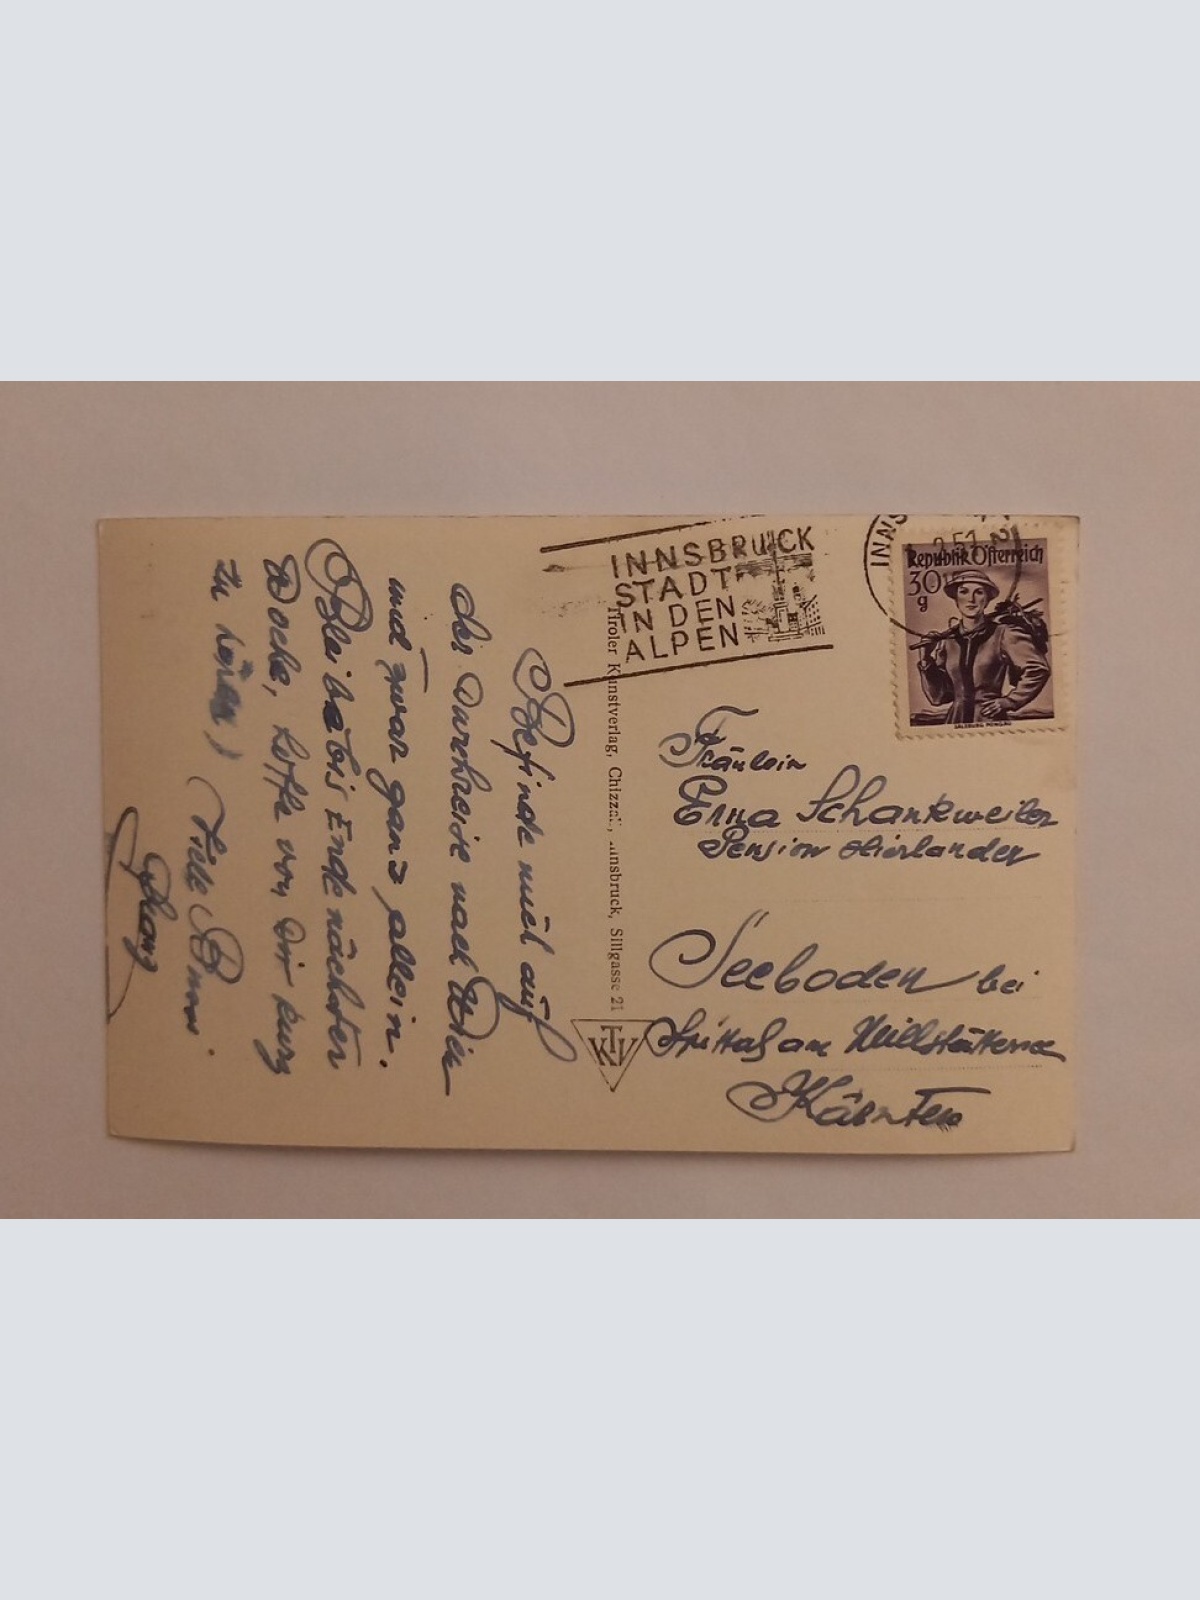 INNSBRUCK
STADT
IN DEN
ALPEN
Republik Österreich
30
g
SALZBURG PONGAU
Tiroler Kunstverlag, Chizzali, Innsbruck, Sillgasse 21
KTV
Fräulein
Erna Schankweiler
Pension
Seeboden bei
Spittal am Millstättersee
Kärnten
Befinde mich auf
der Durchreise nach Wien
und zwar ganz allein.
Bleibe bis Ende nächster
Woche, hoffe von Dir kurz
zu hören! Viele